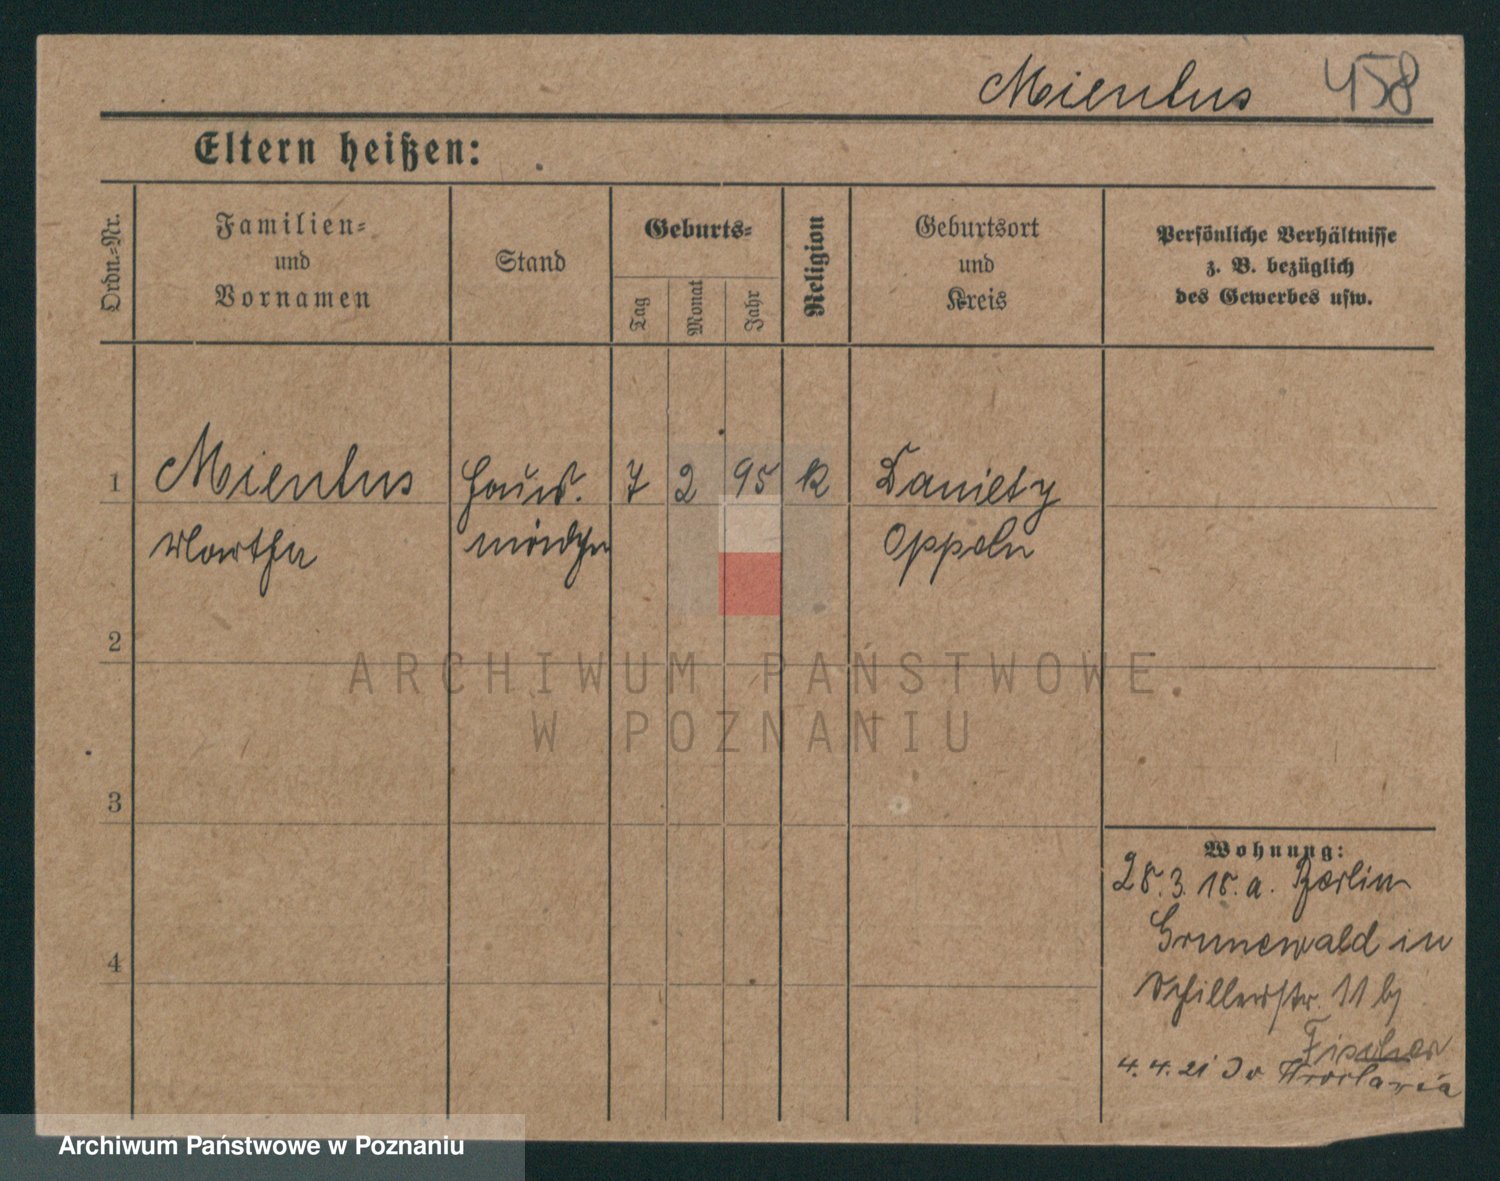 Mientus 458
Eltern heißen:
Ordn.-Nr.
Familien-
und
Vornamen
Stand
Geburts-
Tag
Monat
Jahr
Religion
Geburtsort
und
Kreis
Persönliche Verhältnisse
z. B. bezüglich
des Gewerbes usw.
1 Mientus Haus. 7 2 95 K Danietz
Martha mädchen Oppeln
2
3
4
ARCHIWUM PAŃSTWOWE
W POZNANIU
Wohnung:
28.3.18. a. Berlin
Grunewald in
Schillerstr. 11 bj
Fischer
4.4.21 Do Wrocławia
Archiwum Państwowe w Poznaniu